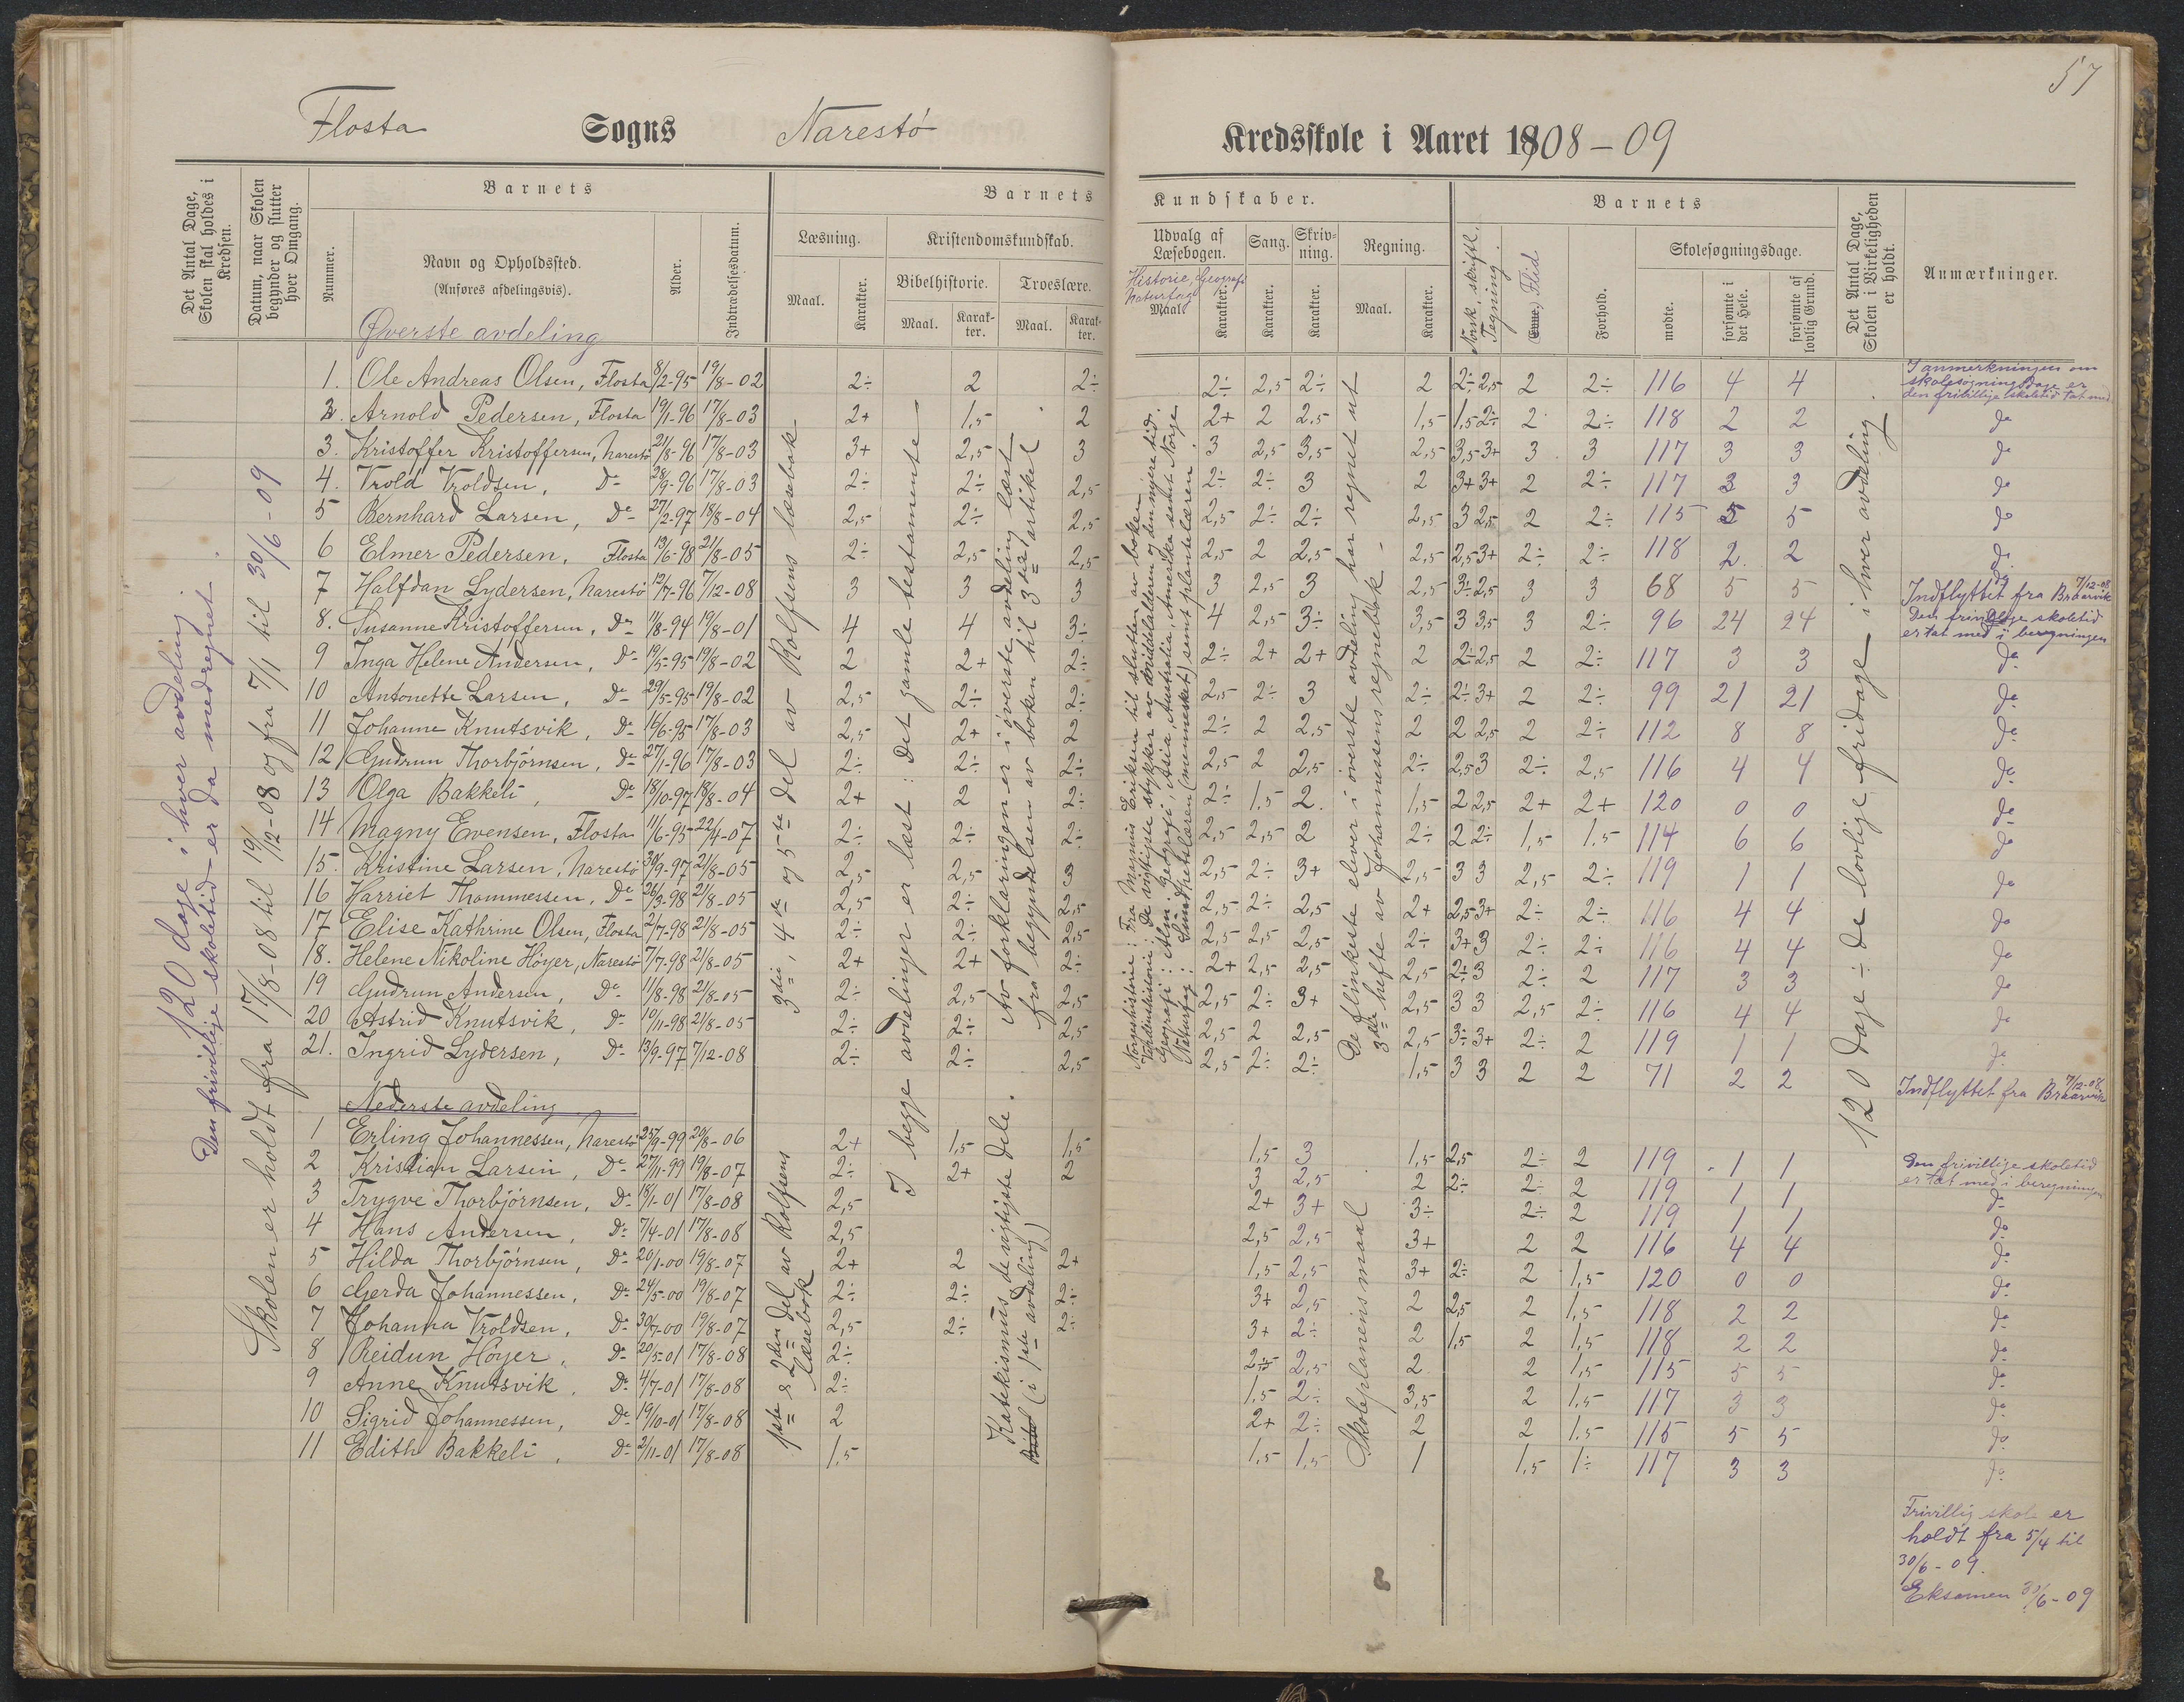 57
Flosta Sogns Narestö Kredsskole i Aaret 1908-09
Det Antal Dage, Skolen skal holdes i Kredsen.
Datum, naar Skolen begynder og slutter hver Omgang.
Barnets
Nummer.
Navn og Opholdssted.
(Anføres afdelingsvis).
Alder.
Indtrædelsesdatum.
Barnets Kundskaber.
Læsning.
Maal.
Karakter.
Kristendomskundskab.
Bibelhistorie.
Maal.
Karakter.
Troeslære.
Maal.
Karakter.
Udvalg af Læsebogen.
Historie, Geografi
Naturfag
Maal.
Karakter.
Sang.
Karakter.
Skrivning.
Karakter.
Regning.
Maal.
Karakter.
Barnets
Norsk, skriftl.
Tegning.
Evne, Flid
Forhold.
Skolesøgningsdage.
mødte.
forsømte i det Hele.
forsømte af lovlig Grund.
Det Antal Dage, Skolen i Virkeligheden er holdt.
Anmærkninger.
120 dage i hver avdeling.
Den frivillige skoletid er da medregnet.
Skolen er holdt fra 17/8-08 til 19/12-08 og fra 7/1 til 30/6-09
3die, 4de og 5te del av Rolfsens læsebok
I begge avdelinger er læst: Det gamle testamente
Av forklaringen er i øverste avdeling læst
fra begyndelsen av boken til 3die artikel
Norgeshistorie: Fra Magnus Eriksen til slutten av boken
Verdenshistorie: De vigtigste stykker av middelalderen og den nyere tid.
Geografi: Alm. geografi, Asia, Australia, Amerika samt Norge
Naturfag: Sundhetslæren (mennesket) samt plantelæren.
De flinkeste elever i øverste avdeling har regnet ut
3die hefte av Johannessens regnebok
120 dage ÷ de lovlige fridage i hver avdeling
Øverste avdeling
1. Ole Andreas Olsen, Flosta 8/2-95 19/8-02 2÷ 2 2÷ 2÷ 2,5 2÷ 2 2÷ 2,5 2 2÷ 116 4 4 I anmerkningen om skolesøgningsdage er den frivillige skoletid tat med
2. Arnold Pedersen, Flosta 19/1-96 17/8-03 2+ 1,5 2 2+ 2 2,5 1,5 1,5 2÷ 2 2÷ 118 2 2 do
3. Kristoffer Kristoffersen, Narestö 21/8-96 17/8-03 3+ 2,5 3 3 2,5 3,5 2,5 3,5 3+ 3 3 117 3 3 do
4. Trold Troldsen, Do 28/9-96 17/8-03 2÷ 2÷ 2,5 2÷ 2÷ 3 2 3+ 3+ 2 2÷ 117 3 3 do
5 Bernhard Larsen, Do 27/2-97 18/8-04 2,5 2÷ 2,5 2,5 2÷ 2÷ 2,5 3 2,5 2 2÷ 115 5 5 do
6 Elmer Pedersen, Flosta 13/6-98 21/8-05 2÷ 2,5 2,5 2,5 2 2,5 2,5 2,5 3+ 2÷ 2÷ 118 2 2 do
7 Halfdan Lydersen, Narestö 12/7-96 7/12-08 3 3 3 3 2,5 3 2,5 3÷ 2,5 3 3 68 5 5 Indflyttet fra Braarvik 7/12-08
8. Susanne Kristoffersen, Do 11/8-94 19/8-01 4 4 3÷ 4 2,5 3÷ 3,5 3 3,5 3 2÷ 96 24 24 Den frivillige skoletid er tat med i beregningen
9 Inga Helene Andersen, Do 19/5-95 19/8-02 2 2+ 2÷ 2÷ 2+ 2+ 2 2÷ 2,5 2 2÷ 117 3 3 do
10 Antonette Larsen, Do 29/5-95 19/8-02 2,5 2÷ 2÷ 2,5 2÷ 3 2÷ 2÷ 3+ 2 2÷ 99 21 21 do
11 Johanne Knutsvik, Do 16/6-95 17/8-03 2,5 2+ 2 2÷ 2 2,5 2 2 2,5 2 2÷ 112 8 8 do
12 Gudrun Thorbjörnsen, Do 27/1-96 17/8-03 2÷ 2÷ 2÷ 2,5 2 2,5 2÷ 2,5 3 2÷ 2,5 116 4 4 do
13 Olga Bakkeli, Do 18/10-97 18/8-04 2+ 2 2÷ 2÷ 1,5 2 1,5 2 2,5 2+ 2+ 120 0 0 do
14 Magny Evensen, Flosta 11/6-95 22/4-07 2÷ 2÷ 2÷ 2,5 2,5 2 2÷ 2 2÷ 1,5 1,5 114 6 6 do
15. Kristine Larsen, Narestö 30/9-97 21/8-05 2,5 2,5 3 2,5 2÷ 3+ 2,5 3 3 2,5 2÷ 119 1 1 do
16 Harriet Thommessen, Do 26/3-98 21/8-05 2,5 2÷ 2,5 2,5 2÷ 2,5 2+ 2,5 3+ 2÷ 2÷ 116 4 4 do
17 Elise Kathrine Olsen, Flosta 2/7-98 21/8-05 2÷ 2÷ 2,5 2,5 2,5 2,5 2÷ 3+ 3 2÷ 2÷ 116 4 4 do
18. Helene Nikoline Höyer, Narestö 7/7-98 21/8-05 2+ 2+ 2÷ 2+ 2,5 2,5 2,5 2÷ 3 2÷ 2 117 3 3 do
19 Gudrun Andersen, Do 11/8-98 21/8-05 2÷ 2,5 2,5 2,5 2÷ 3+ 2,5 3 3 2,5 2÷ 116 4 4 do
20 Astrid Knutsvik, Do 10/11-98 21/8-05 2÷ 2÷ 2,5 2,5 2 2,5 2,5 3÷ 3+ 2÷ 2 119 1 1 do
21. Ingrid Lydersen, Do 13/9-97 7/12-08 2÷ 2÷ 2,5 2,5 2÷ 2÷ 1,5 3 3 2 2 71 2 2 Indflyttet fra Braarvik 7/12-08
Nederste avdeling
1ste & 2den del av Rolfsens læsebok
Katekismus de vigtigste dele.
(i 1ste avdeling)
Skoleplanens maal
1 Erling Johannessen, Narestö 25/9-99 20/8-06 2+ 1,5 1,5 1,5 3 1,5 2,5 2÷ 2 119 1 1 Den frivillige skoletid er tat med i beregningen
2 Kristian Larsen, Do 27/11-99 19/8-07 2÷ 2+ 2 3 2,5 2 2÷ 2÷ 2 119 1 1 do
3 Trygve Thorbjörnsen, Do 18/1-01 17/8-08 2,5 2+ 3+ 3÷ 2÷ 2 119 1 1 do
4 Hans Andersen, Do 7/4-01 17/8-08 2,5 2,5 2,5 3+ 2 2 116 4 4 do
5 Hilda Thorbjörnsen, Do 20/1-00 19/8-07 2+ 2 2+ 1,5 2,5 3+ 2÷ 2 1,5 120 0 0 do
6 Gerda Johannessen, Do 24/5-00 19/8-07 2÷ 2÷ 2÷ 3+ 2,5 2 2,5 2 1,5 118 2 2 do
7 Johanna Troldsen, Do 30/7-00 19/8-07 2,5 2÷ 2÷ 3+ 2÷ 2 1,5 2 1,5 118 2 2 do
8 Reidun Höyer, Do 20/5-01 17/8-08 2÷ 2÷ 2,5 2 2 1,5 115 5 5 do
9 Anne Knutsvik, Do 4/7-01 17/8-08 2÷ 1,5 2÷ 3,5 2 1,5 117 3 3 do
10 Sigrid Johannessen, Do 19/10-01 17/8-08 2 2+ 2÷ 2 2 1,5 115 5 5 do
11 Edith Bakkeli, Do 2/11-01 17/8-08 1,5 1,5 1,5 1 1,5 1÷ 117 3 3 do
Frivillig skole er
holdt fra 5/4 til
30/6-09.
Eksamen 30/6-09